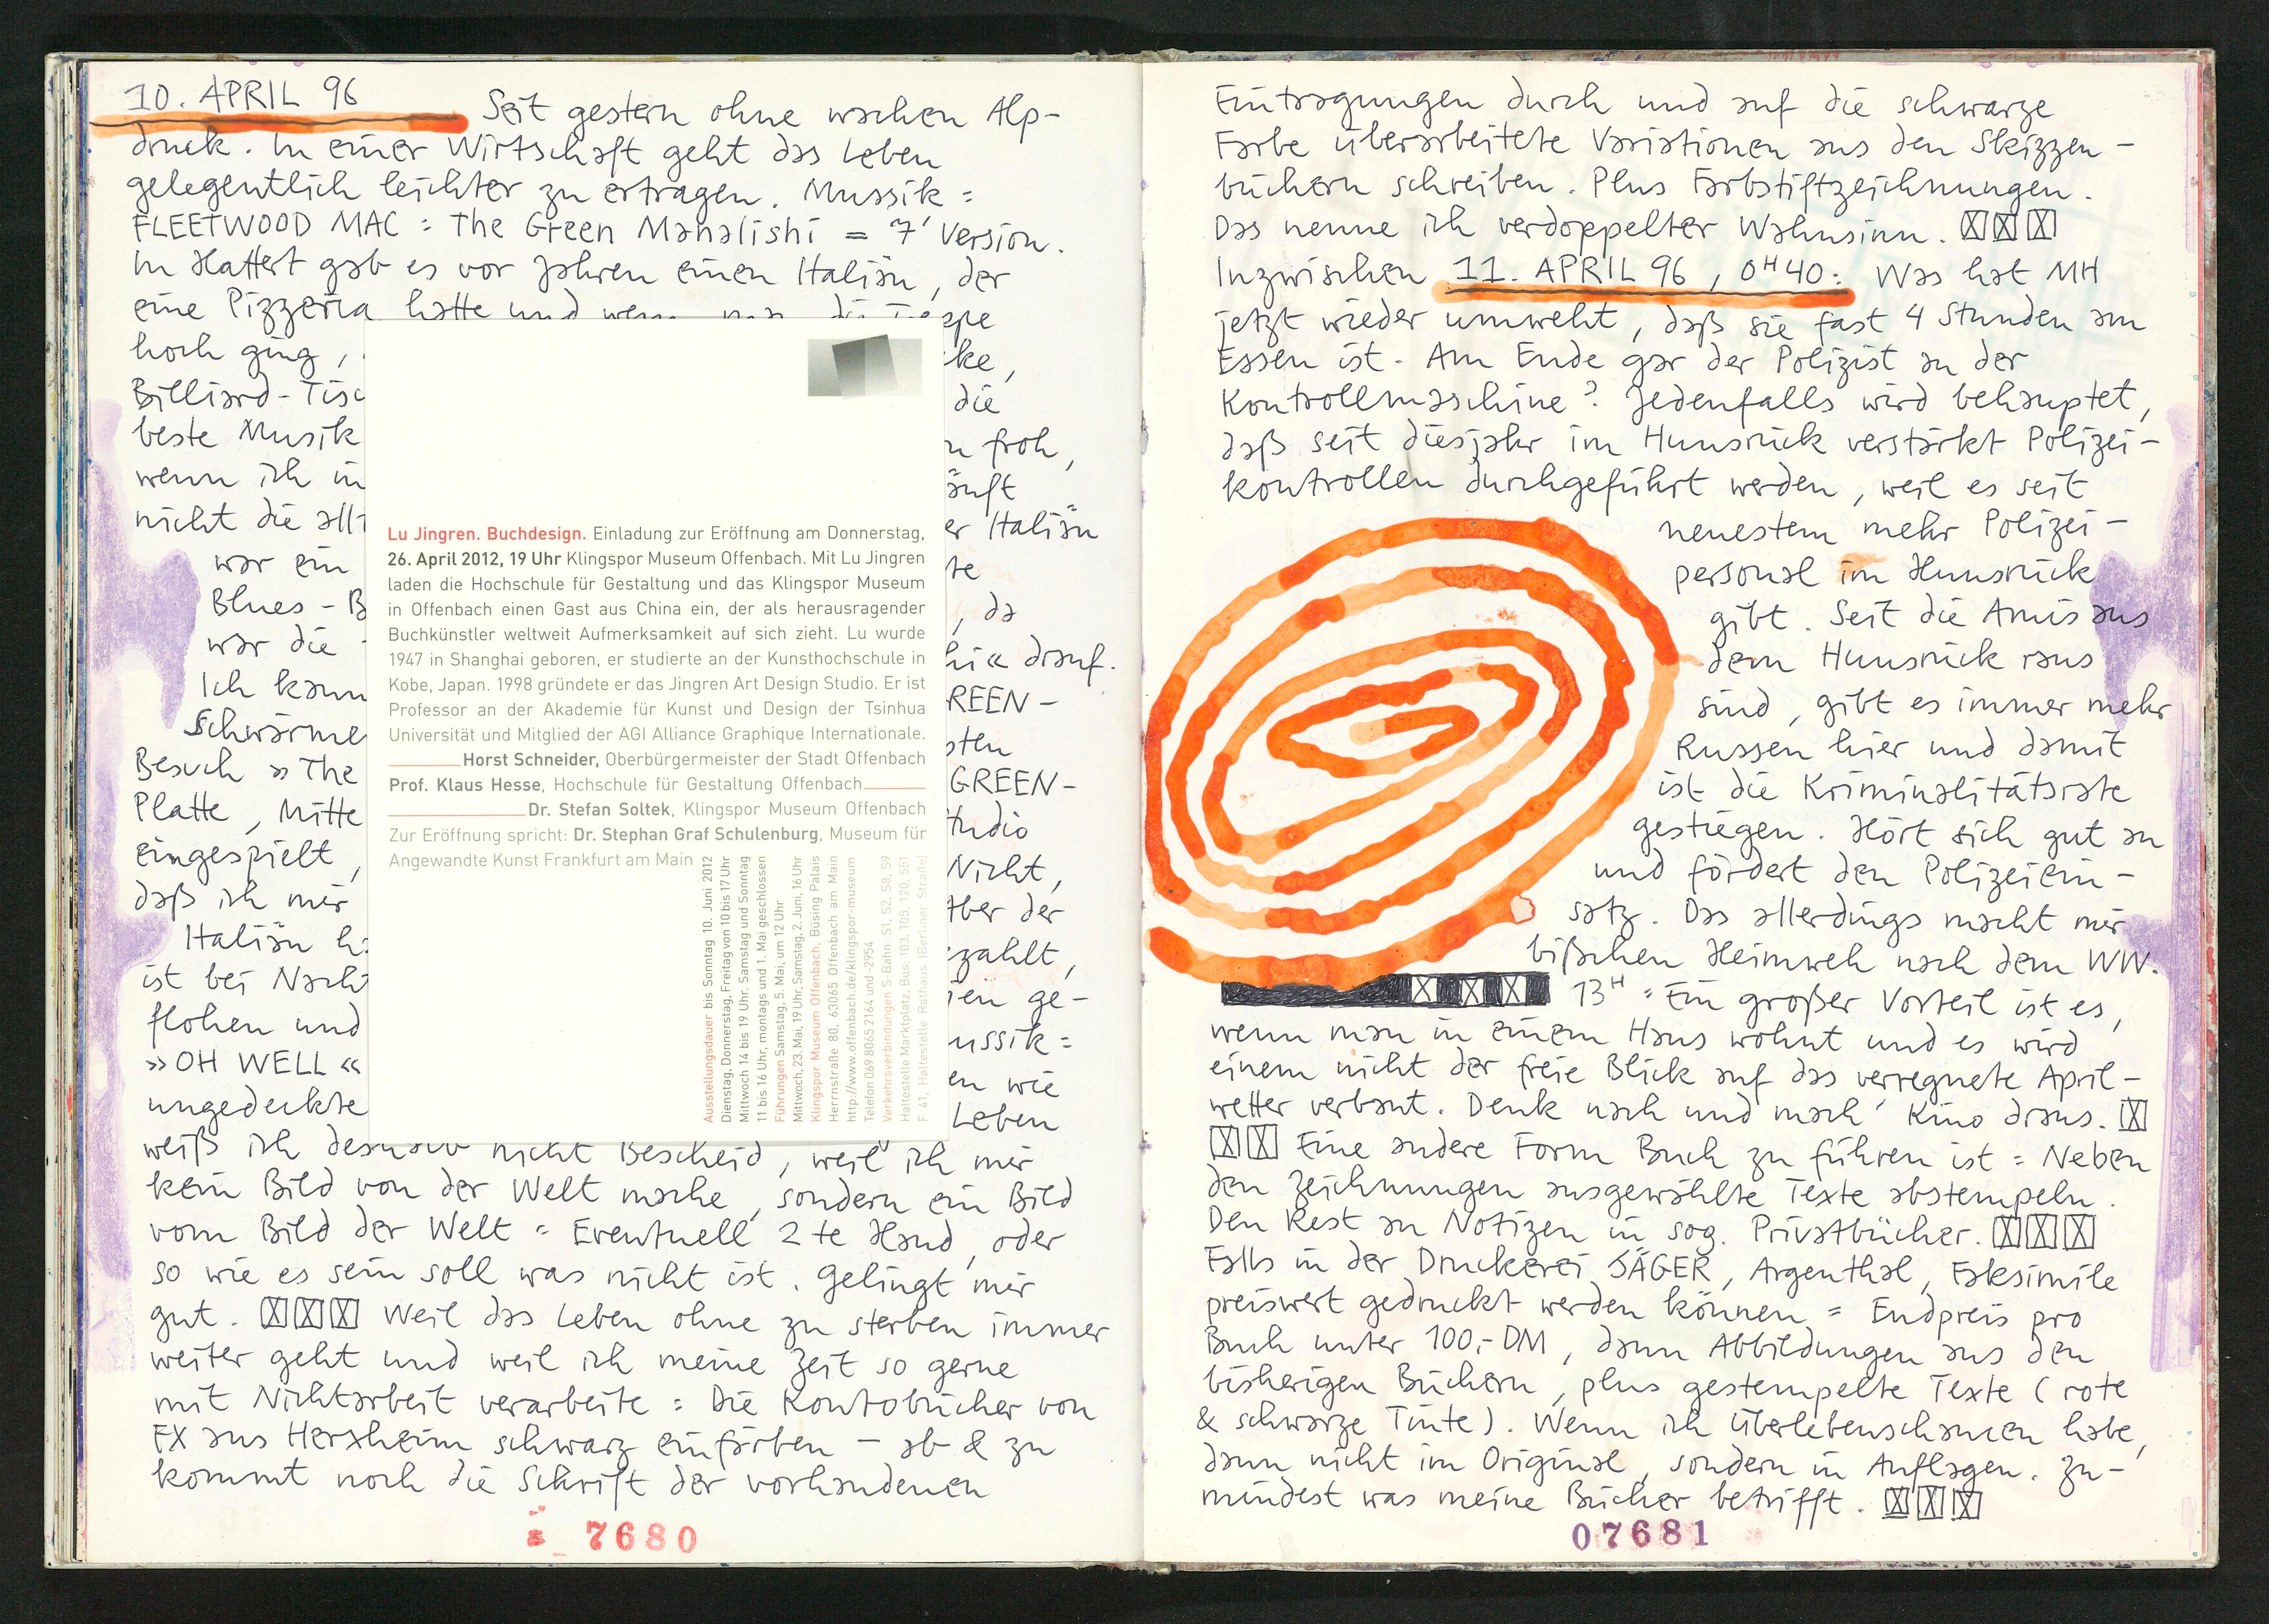 10. APRIL 96 Seit gestern ohne wachen Alp-
druck. In einer Wirtschaft geht das Leben
gelegentlich leichter zu ertragen. Mussik =
FLEETWOOD MAC = The Green Manalishi = 7' Version.
In Hattert gab es vor Jahren einen Italiän, der
eine Pizzeria hatte und wenn man die Treppe
hoch ging,
Billiard-Tisc
beste Musik
wenn ich in
nicht die all
war ein
Blues-B
war die
Ich kann
Schwärme
Besuch »The
Platte, Mitte
eingespielt,
daß ich mir
Italiän h
ist bei Nach
flohen und
»OH WELL«
ungedeckte
cke,
die
n froh,
äuft
er Italiän
te
, da
hi« drauf.
REEN-
sten
GREEN-
tudio
Nicht,
Aber der
ezahlt,
ien ge-
ussik =
en wie
Leben
weiß ich deshalb nicht Bescheid, weil ich mir
kein Bild von der Welt mache, sondern ein Bild
vom Bild der Welt = Eventuell 2te Hand, oder
so wie es sein soll was nicht ist. Gelingt mir
gut. Weil das Leben ohne zu sterben immer
weiter geht und weil ich meine Zeit so gerne
mit Nichtarbeit verarbeite = Die Kontobücher von
FX aus Herxheim schwarz einfärben – ab & zu
kommt noch die Schrift der vorhandenen
7680
Lu Jingren. Buchdesign. Einladung zur Eröffnung am Donnerstag,
26. April 2012, 19 Uhr Klingspor Museum Offenbach. Mit Lu Jingren
laden die Hochschule für Gestaltung und das Klingspor Museum
in Offenbach einen Gast aus China ein, der als herausragender
Buchkünstler weltweit Aufmerksamkeit auf sich zieht. Lu wurde
1947 in Shanghai geboren, er studierte an der Kunsthochschule in
Kobe, Japan. 1998 gründete er das Jingren Art Design Studio. Er ist
Professor an der Akademie für Kunst und Design der Tsinhua
Universität und Mitglied der AGI Alliance Graphique Internationale.
Horst Schneider, Oberbürgermeister der Stadt Offenbach
Prof. Klaus Hesse, Hochschule für Gestaltung Offenbach
Dr. Stefan Soltek, Klingspor Museum Offenbach
Zur Eröffnung spricht: Dr. Stephan Graf Schulenburg, Museum für
Angewandte Kunst Frankfurt am Main
Ausstellungsdauer bis Sonntag 10. Juni 2012
Dienstag, Donnerstag, Freitag von 10 bis 17 Uhr
Mittwoch 14 bis 19 Uhr. Samstag und Sonntag
11 bis 16 Uhr, montags und 1. Mai geschlossen
Führungen Samstag, 5. Mai, um 12 Uhr
Mittwoch, 23. Mai, 19 Uhr, Samstag, 2. Juni, 16 Uhr
Klingspor Museum Offenbach, Büsing Palais
Herrnstraße 80, 63065 Offenbach am Main
http://www.offenbach.de/klingspor-museum
Telefon 069 8065 2164 und -2954
Verkehrsverbindungen S-Bahn: S1, S2, S8, S9
Haltestelle Marktplatz, Bus 103, 105, 120, 551
F 41, Haltestelle Rathaus (Berliner Straße)
Eintragungen durch und auf die schwarze
Farbe überarbeitete Variationen aus den Skizzen-
büchern schreiben. Plus Farbstiftzeichnungen.
Das nenne ich verdoppelter Wahnsinn.
Inzwischen 11. APRIL 96, 0H40: Was hat MH
jetzt wieder umweht, daß sie fast 4 Stunden am
Essen ist. Am Ende gar der Polizist an der
Kontrollmaschine? Jedenfalls wird behauptet,
daß seit diesjahr im Hunsrück verstärkt Polizei-
kontrollen durchgeführt werden, weil es seit
neuestem mehr Polizei-
personal im Hunsrück
gibt. Seit die Amis aus
dem Hunsrück raus
sind, gibt es immer mehr
Russen hier und damit
ist die Kriminalitätsrate
gestiegen. Hört sich gut an
und fördert den Polizeiein-
satz. Das allerdings macht mir
bißchen Heimweh nach dem WW.
13H = Ein großer Vorteil ist es,
wenn man in einem Haus wohnt und es wird
einem nicht der freie Blick auf das verregnete April-
wetter verbaut. Denk nach und mach' Kino draus.
Eine andere Form Buch zu führen ist = Neben
den Zeichnungen ausgewählte Texte abstempeln.
Den Rest an Notizen in sog. Privatbücher.
Falls in der Druckerei SÄGER, Argenthal, Faksimile
preiswert gedruckt werden können = Endpreis pro
Buch unter 100,- DM, dann Abbildungen aus den
bisherigen Büchern, plus gestempelte Texte (rote
& schwarze Tinte). Wenn ich Überlebenschancen habe,
dann nicht im Original, sondern in Auflagen. Zu-
mindest was meine Bücher betrifft.
07681